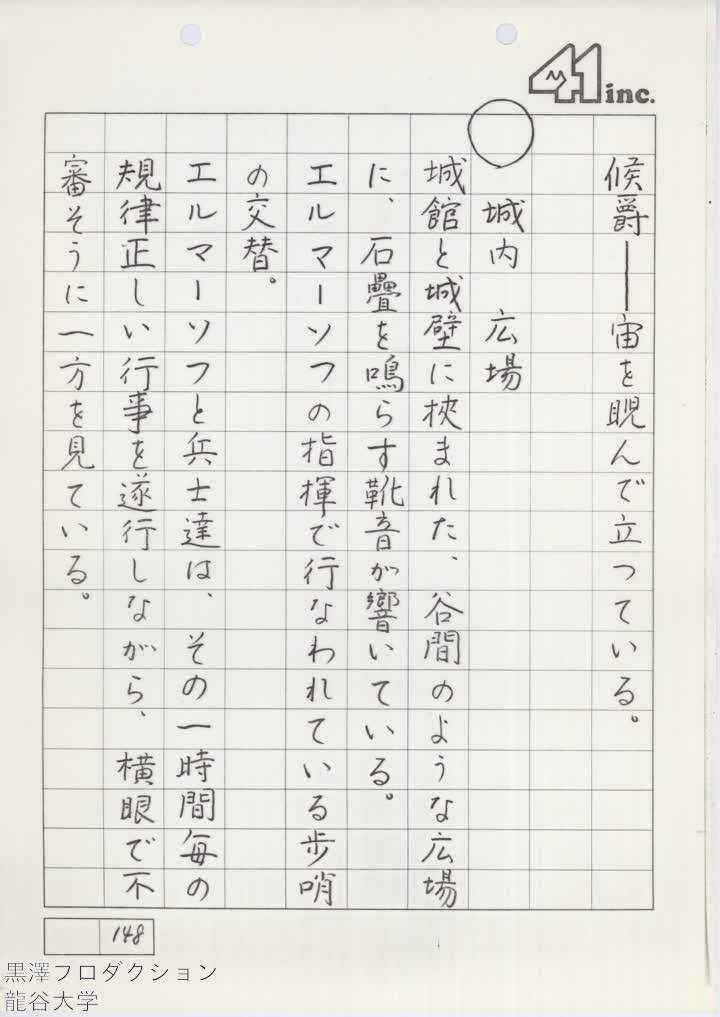 41 inc.
候爵――宙を睨んで立つている。
○
城内　広場
城館と城壁に挾まれた、谷間のような広場
に、石疊を鳴らす靴音が響いている。
エルマーソフの指揮で行なわれている歩哨
の交替。
エルマーソフと兵士達は、その一時間毎の
規律正しい行事を遂行しながら、横眼で不
審そうに一方を見ている。
148
黒澤プロダクション
龍谷大学